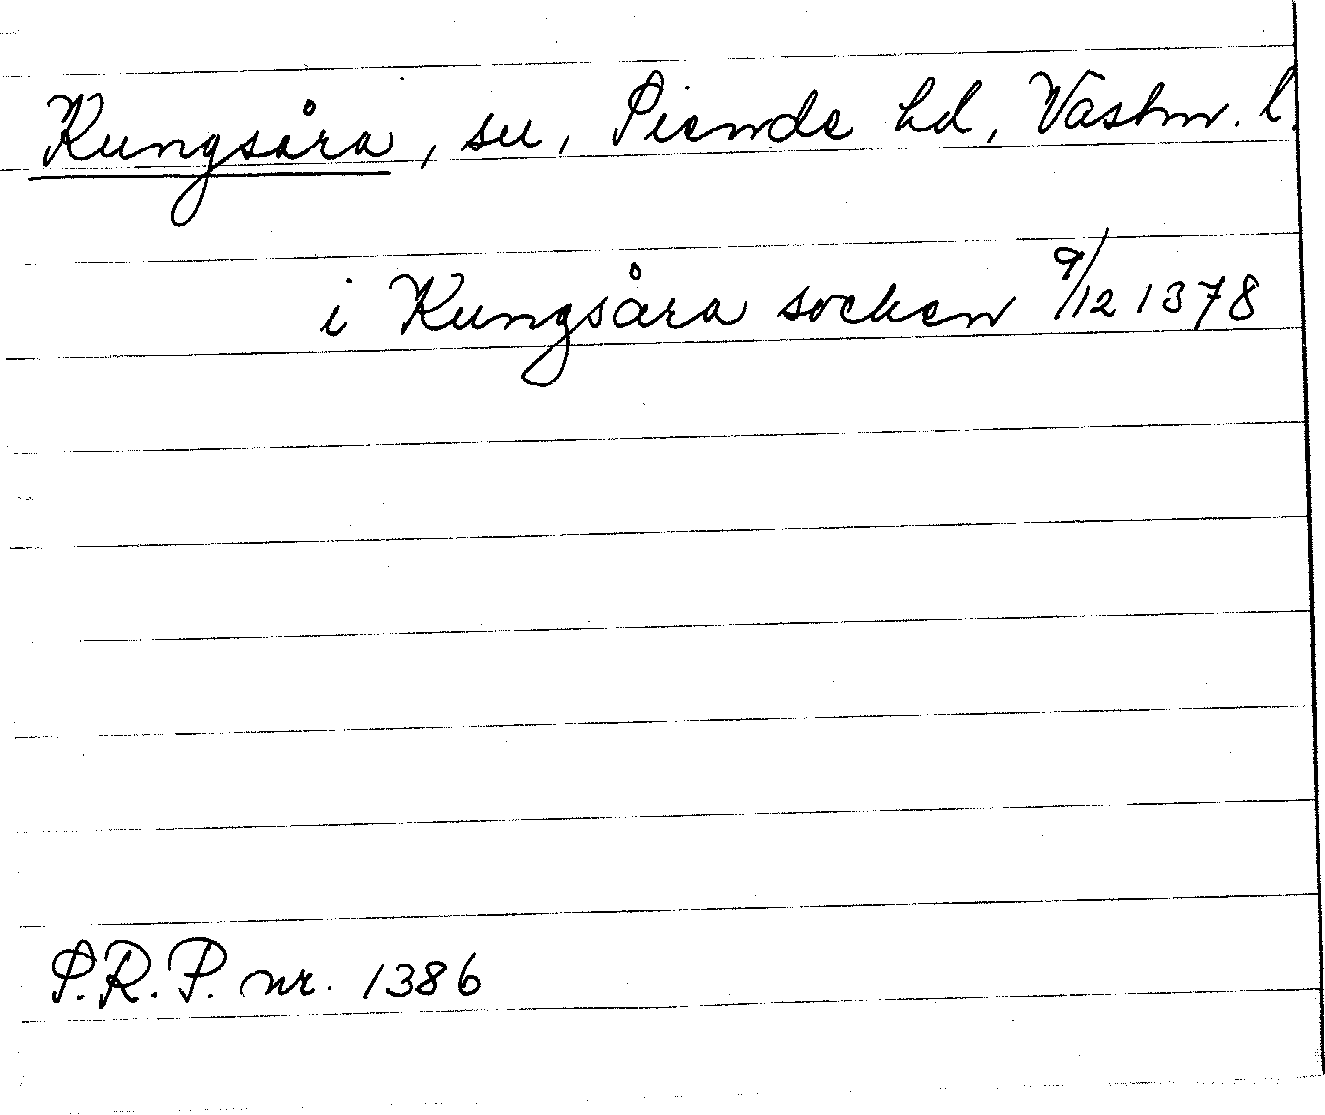 Kungsåra, sn, Siende hd, Västm. l.
i Kungsåra socken 9/12 1378
P.R.P. nr. 1386